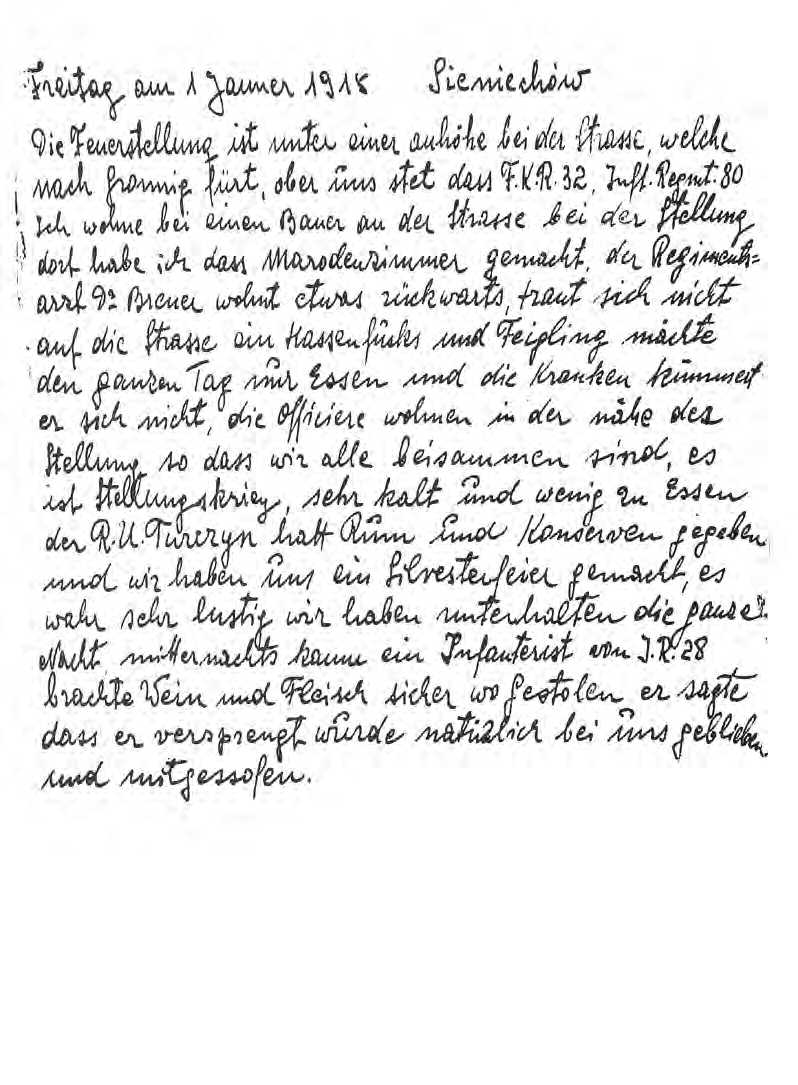 Freitag am 1 Janner 1915 Sieniechów
Die Feuerstellung ist unter einer anhöhe bei der Strasse, welche
nach Gromnig fürt, ober üns stet dass F.K.R. 32, Inft. Regmt. 80
Ich wohne bei einen Bauer an der Strasse bei der Stellung
dort habe ich dass Marodenzimmer gemacht, der Regiments=
arzt Dr Breuer wohnt etwas rückwarts, traut sich nicht
auf die Strasse ein Hassenfücks und Feigling möchte
den ganzen Tag nür Essen und die Kranken kümmert
er sich nicht, die Officiere wohnen in der nähe der
Stellung so dass wir alle beisammen sind, es
ist Stellungskrieg, sehr kalt ünd wenig zu Essen
der R.U. Turczyn hatt Rüm ünd Konserven gegeben
und wir haben üns ein Silvesterfeier gemacht, es
wahr sehr lustig wir haben unterhalten die ganze
Nacht mitternachts kamm ein Infanterist von I.R. 28
brachte Wein und Fleisch sicher wo gestolen er sagte
dass er versprengt würde natürlich bei üns geblieben
und mitgessofen.